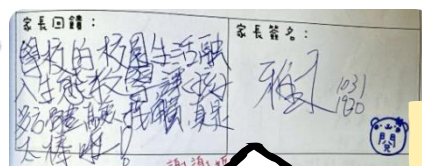 家長回饋：
學校的校園生活融
入生態教學讓孩子
多方體驗、接觸真是
太棒啦！
家長簽名：
1031
1920
閱